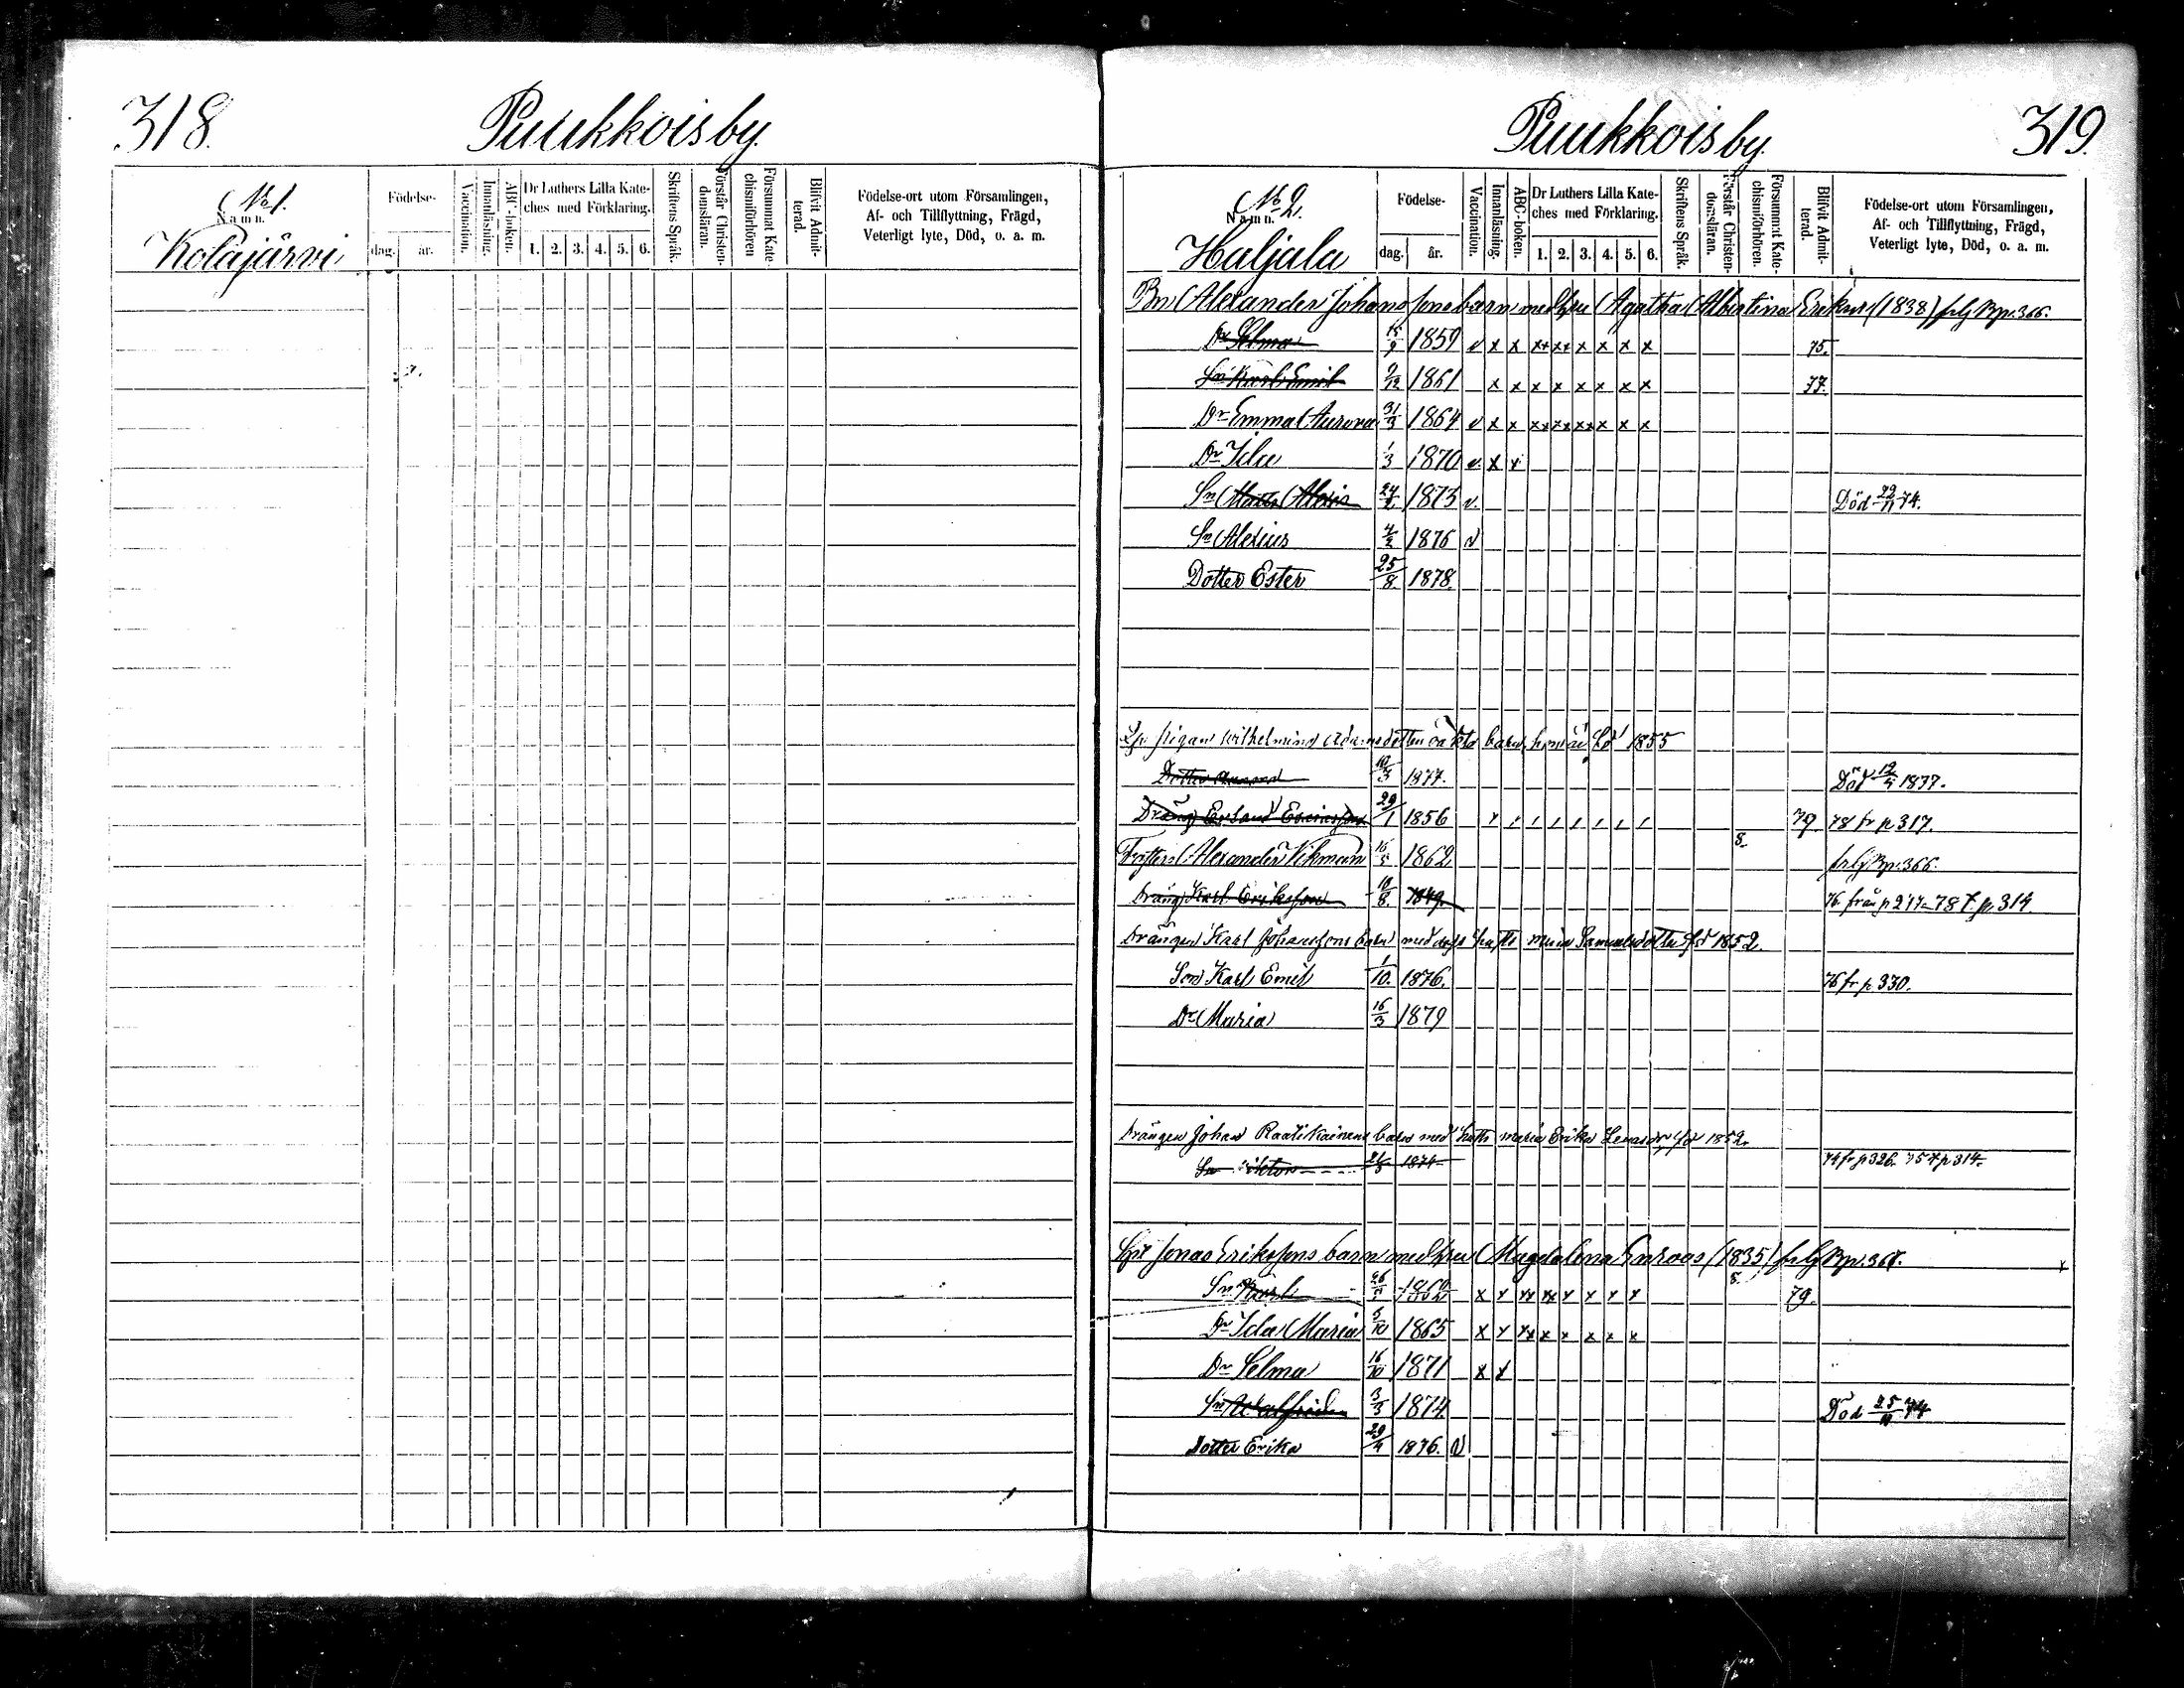 318.
Puukkoisby.
No 1.
Namn.
Kolajärvi
Födelse-
dag.
år.
Vaccination.
Innanläsning.
ABC-boken.
Dr Luthers Lilla Kate-
ches med Förklaring.
1. 2. 3. 4. 5. 6.
Skriftens Språk.
Förstår Christen-
domsläran.
Försummat Kate-
chismiförhören
Blifvit Admit-
terad.
Födelse-ort utom Församlingen,
Af- och Tillflyttning, Frägd,
Veterligt lyte, Död, o. a. m.
Puukkoisby.
319.
No 2.
Namn.
Haljala
Födelse-
dag.
år.
Vaccination.
Innanläsning.
ABC-boken.
Dr Luthers Lilla Kate-
ches med Förklaring.
1. 2. 3. 4. 5. 6.
Skriftens Språk.
Förstår Christen-
domsläran.
Försummat Kate-
chismiförhören.
Blifvit Admit-
terad.
Födelse-ort utom Församlingen,
Af- och Tillflyttning, Frägd,
Veterligt lyte, Död, o. a. m.
Bn Alexander Johanssons barn med hru Agatha Albertina (1838) Bp. 366.
Dr Selma 1859 v x x xx xx x x x x 75.
Sn Karl Emil 2/12 1861 x x x x x x x x 77.
Dr Emma Aurora 31/3 1864 v x x xx xx xx x x x
Dr Ida 1/3 1870 v. x x
Sn Alexis 24/2 1873 v. Död 74.
Sn Alexius 4/2 1876 v
Dotter Ester 25/8. 1878.
pigan Wilhelmina barn, 1855
Dotter 10/3 1877. Död 1877.
Dräng Ericsson 29/1 1856 79 78 fr p 317.
8.
Alexander Vikman 1862 Bp. 366.
Dräng Karl Eriksson 10/8. 1849 76. från p 217 78 t. p. 314.
Drängen Karl Johanssons barn med Samuelsdotter fd 1852.
Son Karl Emil 1/10. 1876. 76 fr p 330.
Dr Maria 16/3 1879
Drängen Johan Raatikainens barn med Maria Erika fd 1852.
Sn 1874 74 fr p 326. 75 t p 314.
Jonas Erikssons barn med hru Magdalena Enroos (1835) Bp. 368.
8.
Sn Karl x x xx xx x x x x 79.
Dr Ida Maria 5/10 1865 x x xx x x x x x
Dr Selma 16/10 1871 x x
Sn Walfrid 3/3 1874 Död 74
Dotter Erika 29/4 1876. v